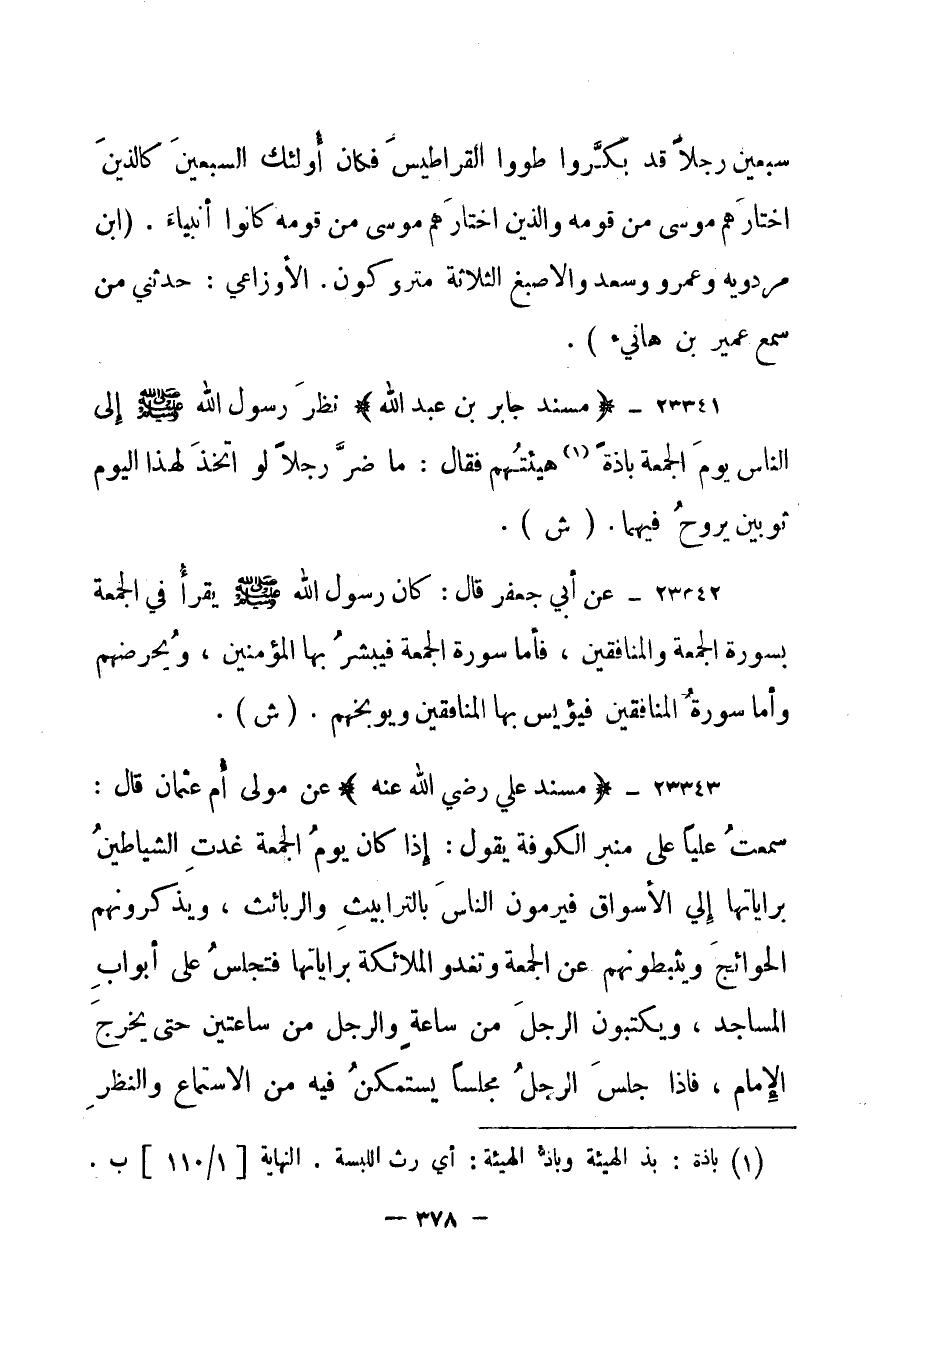 سبعين رجلاً قد بكَّروا طووا القراطيسَ فكان أُولئك السبعينَ كالذينَ
اختارَهم موسى من قومه والذين اختارَهم موسى من قومه كانوا أنبياءَ . (ابن
مردويه وعمرو وسعد والاصبغ الثلاثة متروكون. الأوزاعي : حدثني من
سمع عمير بن هانيء ) .
٢٣٣٤١ ـ ﴿ مسند جابر بن عبد الله ﴾ نظرَ رسول الله ﷺ إلى
الناس يومَ الجمعة باذةً (١) هيئتُهم فقال : ما ضرَّ رجلاً لو اتخذَ لهذا اليوم
ثوبين يروحُ فيهما . ( ش ) .
٢٣٣٤٢ ـ عن أبي جعفر قال : كان رسول الله ﷺ يقرأُ في الجمعة
بسورة الجمعة والمنافقين ، فأما سورة الجمعة فيبشرُ بها المؤمنين ، ويُحرضهم
وأما سورةُ المنافقين فيؤيس بها المنافقين ويوبخهم . ( ش ) .
٢٣٣٤٣ ـ ﴿ مسند علي رضي الله عنه ﴾ عن مولى أُم عثمان قال :
سمعتُ علياً على منبر الكوفة يقول : إذا كان يومُ الجمعة غدتِ الشياطينُ
براياتها إلي الأسواق فيرمون الناسَ بالترابيثِ والربائث ، ويذكرونهم
الحوائجَ ويثبطونهم عن الجمعة وتغدو الملائكة براياتها فتجلسُ على أبوابِ
المساجد ، ويكتبون الرجلَ من ساعةٍ والرجل من ساعتين حتى يخرجَ
الإِمام ، فاذا جلسَ الرجلُ مجلساً يستمكنُ فيه من الاستماع والنظرِ
(١) باذة : بذ الهيئة وباذُّ الهيئة : أي رث اللبسة . النهاية [ ١/١١٠ ] ب .
— ٣٧٨ —